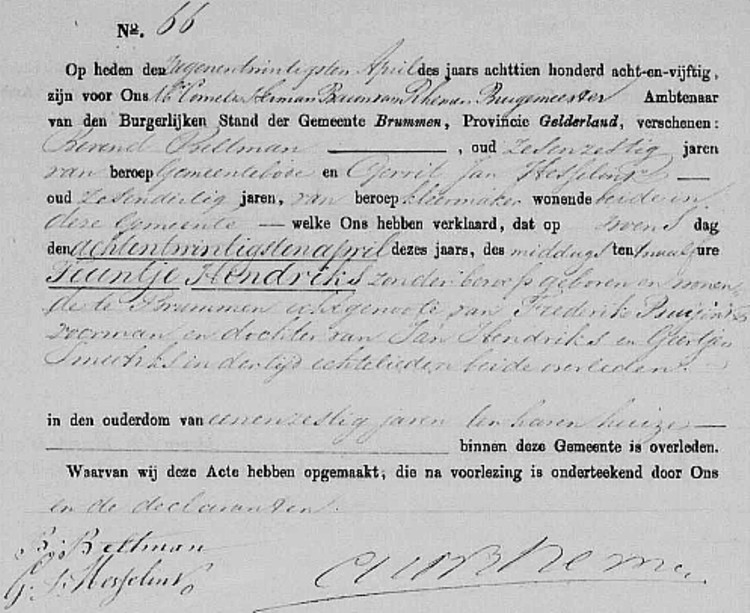 No. 66
Op heden den Negenentwintigsten April des jaars achttien honderd acht-en-vijftig,
zijn voor Ons Mr Cornelis Herman Baum van Rhemen Burgemeester Ambtenaar
van den Burgerlijken Stand der Gemeente Brummen, Provincie Gelderland, verschenen:
Berend Beltman , oud zesenzestig jaren
van beroep Gemeentebode en Gerrit Jan Hesselink
oud zesendertig jaren, van beroep kleermaker wonende beide in
deze Gemeente — welke Ons hebben verklaard, dat op woens dag
den achtentwintigsten april dezes jaars, des middags ten twaalf ure
Teuntje Hendriks zonder beroep geboren en wonen-
de te Brummen echtgenoote van Frederik
voorman en dochter van Jan Hendriks en Geertjen
in der tijd echtelieden beide overleden.
in den ouderdom van eenenzestig jaren ten haren huize
binnen deze Gemeente is overleden.
Waarvan wij deze Acte hebben opgemaakt, die na voorlezing is onderteekend door Ons
en de declaranten.
B. Beltman
G. J. Hesselink